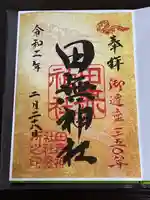 奉拝
御遷座三五〇年
田無神社
令和二年
二月二十八日